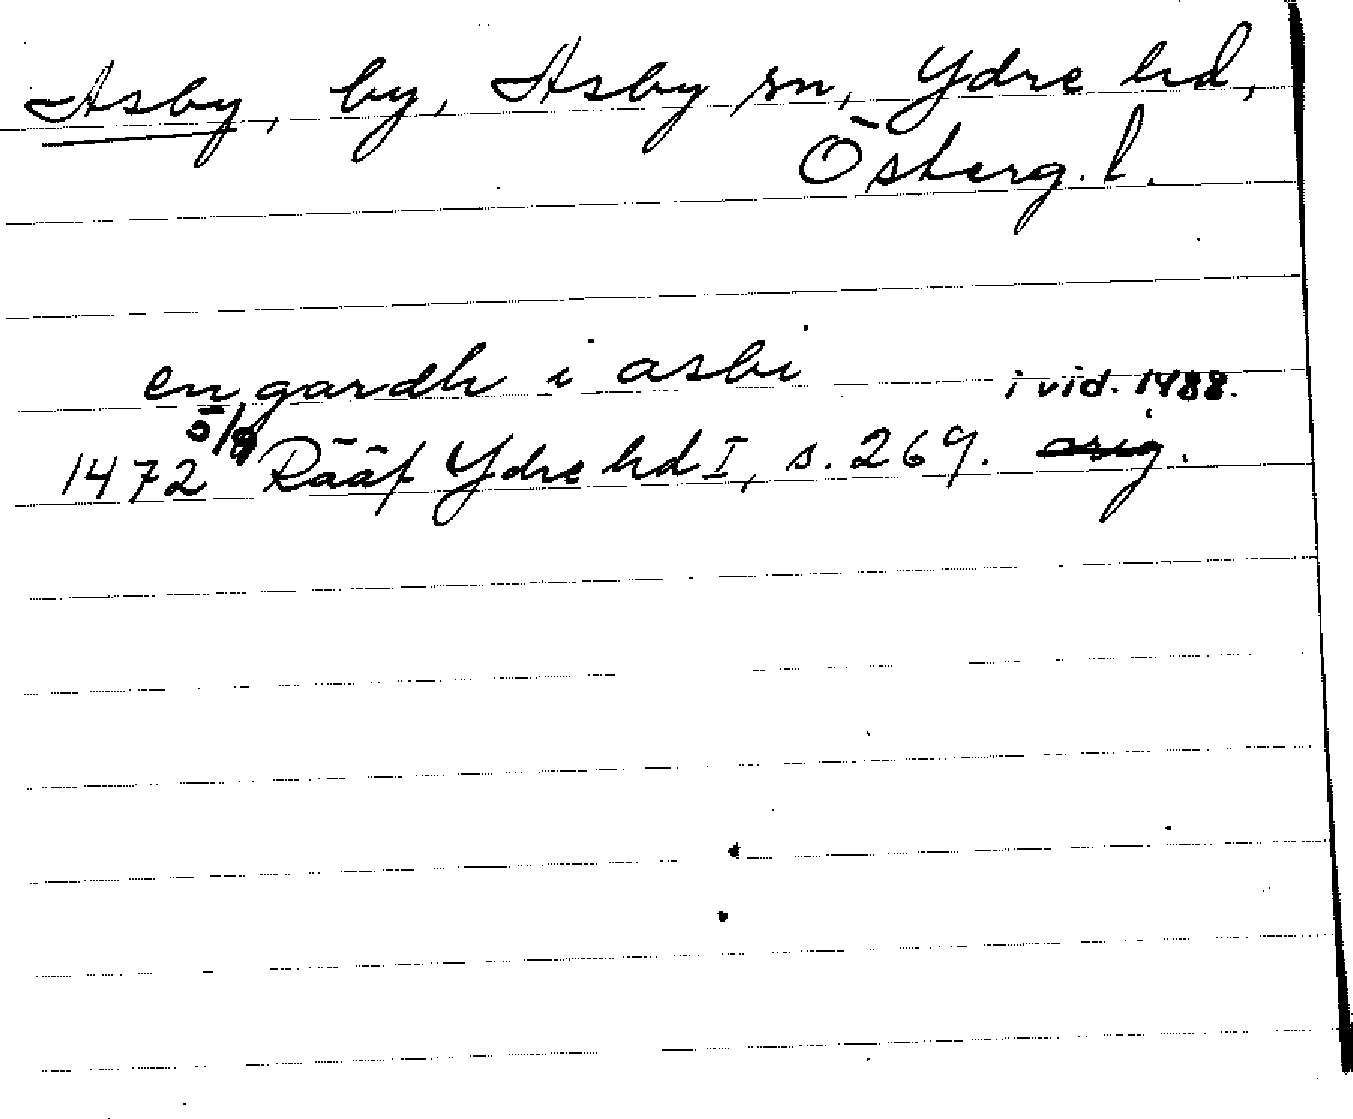 Asby, by, Asby sn, Ydre hd,
Österg. l.
en gardh i asbi i vid. 1488.
1472 5/9 Rääf Ydre hd I, s. 269. orig.